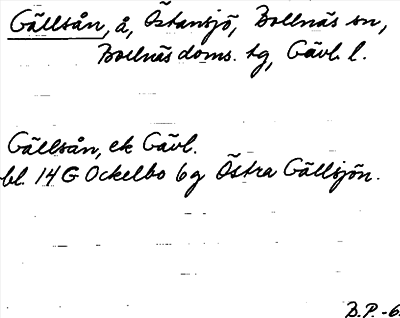 Gällsån, å, Östansjö, Bollnäs sn,
Bollnäs doms. tg, Gävl. l.
Gällsån, ek Gävl.
bl. 14 G Ockelbo 6g Östra Gällsjön.
B.P. -6